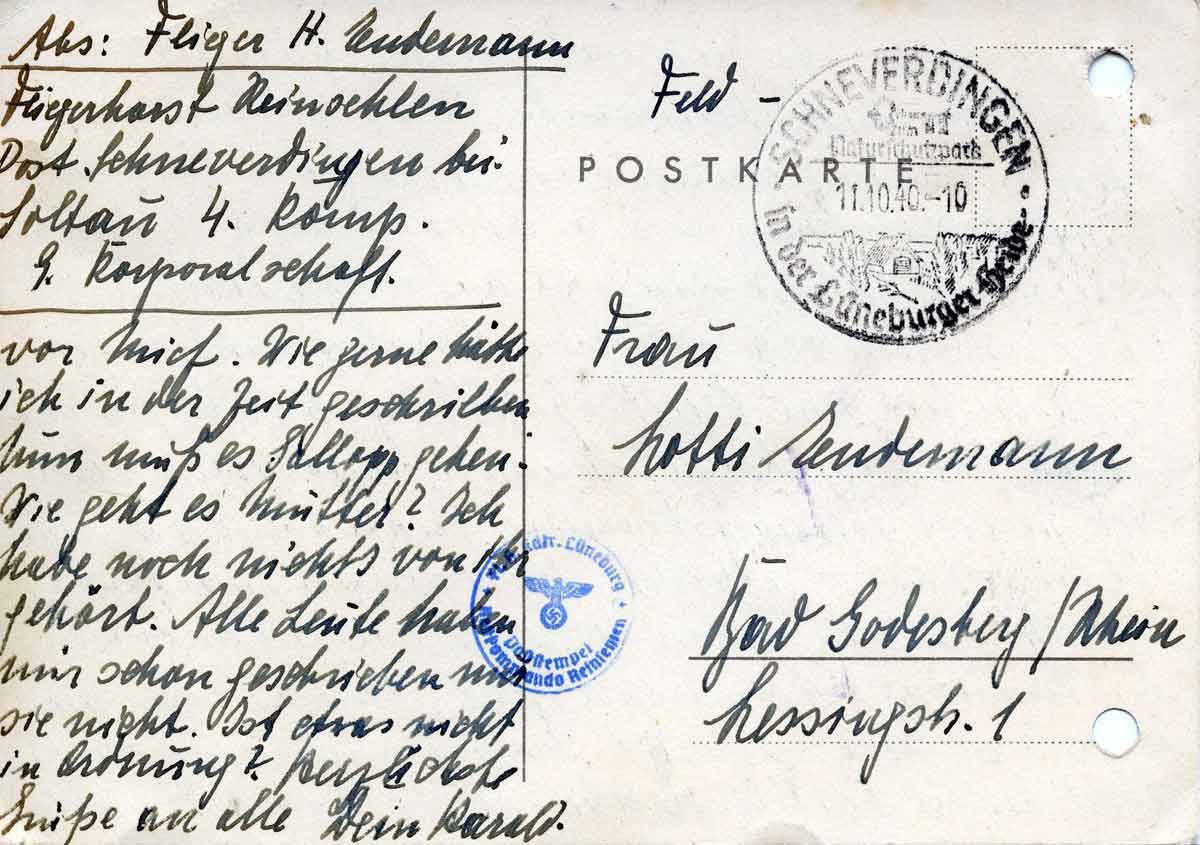 Abs: Flieger H. Endemann
Fliegerhorst Reinsehlen
Post Schneverdingen bei
Soltau 4. Komp.
9. Korporalschaft.
vor mich. Wie gerne hätte
ich in der Zeit geschrieben
nun muß es Gallopp gehen.
Wie geht es Mutter? Ich
habe noch nichts von ihr
gehört. Alle Leute haben
mir schon geschrieben nur
sie nicht. Ist etwas nicht
in Ordnung? Herzlichste
Grüße an alle Dein Harald.
Feld-
POSTKARTE
SCHNEVERDINGEN
Naturschutzpark
11.10.40.-10
in der Lüneburger Heide
Frau
Lotti Endemann
Bad Godesberg/Rhein
Lessingstr. 1
Lüneburg
Poststempel
Reinsehlen